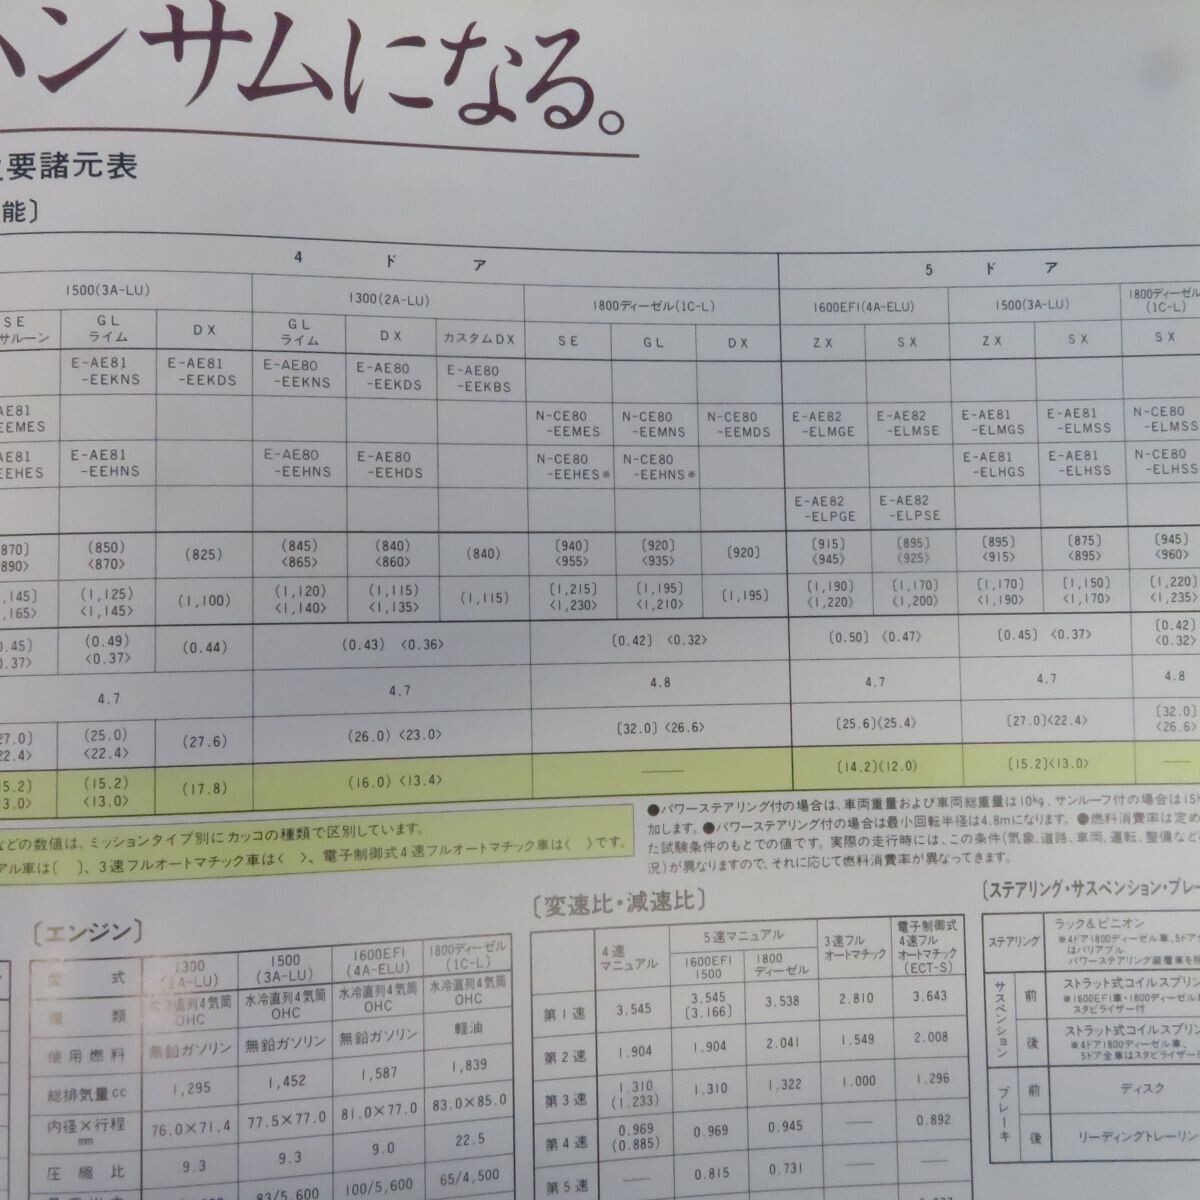 ンサムになる。
要諸元表
能〕
4ドア 5ドア
1500(3A-LU) 1300(2A-LU) 1800ディーゼル(1C-L) 1600EFI(4A-ELU) 1500(3A-LU) 1800ディーゼル(1C-L)
SE サルーン GL ライム DX GL ライム DX カスタムDX SE GL DX ZX SX ZX SX SX
E-AE81-EEKNS E-AE81-EEKDS E-AE80-EEKNS E-AE80-EEKDS E-AE80-EEKBS
AE81 EEMES N-CE80-EEMES N-CE80-EEMNS N-CE80-EEMDS E-AE82-ELMGE E-AE82-ELMSE E-AE81-ELMGS E-AE81-ELMSS N-CE80-ELMSS
AE81 EEHES E-AE81-EEHNS E-AE80-EEHNS E-AE80-EEHDS N-CE80-EEHES※ N-CE80-EEHNS※ E-AE81-ELHGS E-AE81-ELHSS N-CE80-ELHSS
E-AE82-ELPGE E-AE82-ELPSE
870〕 (850) (825) (845) (840) (840) 〔940〕 〔920〕 〔920〕 〔915〕 〔895〕 〔895〕 〔875〕 〔945〕
890〉 〈870〉 〈865〉 〈860〉 〈955〉 〈935〉 《945》 《925》 〈915〉 〈895〉 〈960〉
,145〕 (1,125) (1,100) (1,120) (1,115) (1,115) 〔1,215〕 〔1,195〕 〔1,195〕 〔1,190〕 〔1,170〕 〔1,170〕 〔1,150〕 〔1,220〕
,165〉 〈1,145〉 〈1,140〉 〈1,135〉 〈1,230〉 〈1,210〉 《1,220》 《1,200》 〈1,190〉 〈1,170〉 〈1,235〉
0.45〕 (0.49) (0.44) (0.43) 〈0.36〉 〔0.42〕 〈0.32〉 〔0.50〕 《0.47》 〔0.45〕 〈0.37〉 〔0.42〕
0.37〉 〈0.37〉 〈0.32〉
4.7 4.7 4.8 4.7 4.7 4.8
27.0〕 (25.0) (27.6) (26.0) 〈23.0〉 〔32.0〕 〈26.6〉 〔25.6〕《25.4》 〔27.0〕〈22.4〉 〔32.0〕
22.4〉 〈22.4〉 〈26.6〉
15.2〕 (15.2) (17.8) (16.0) 〈13.4〉 — 〔14.2〕《12.0》 〔15.2〕〈13.0〉 —
3.0〉 〈13.0〉
などの数値は、ミッションタイプ別にカッコの種類で区別しています。
アル車は〔 〕、3速フルオートマチック車は〈 〉、電子制御式4速フルオートマチック車は《 》です。
●パワーステアリング付の場合は、車両重量および車両総重量は10kg、サンルーフ付の場合は15k
加します。●パワーステアリング付の場合は最小回転半径は4.8mになります。●燃料消費率は定め
た試験条件のもとでの値です。実際の走行時には、この条件(気象、道路、車両、運転、整備などの
況)が異なりますので、それに応じて燃料消費率が異なってきます。
〔エンジン〕
型式 1300(2A-LU) 1500(3A-LU) 1600EFI(4A-ELU) 1800ディーゼル(1C-L)
種類 水冷直列4気筒OHC 水冷直列4気筒OHC 水冷直列4気筒OHC 水冷直列4気筒OHC
使用燃料 無鉛ガソリン 無鉛ガソリン 無鉛ガソリン 軽油
総排気量cc 1,295 1,452 1,587 1,839
内径×行程mm 76.0×71.4 77.5×77.0 81.0×77.0 83.0×85.0
圧縮比 9.3 9.3 9.0 22.5
83/5,600 100/5,600 65/4,500
〔変速比・減速比〕
4速マニュアル 5速マニュアル 3速フルオートマチック 電子制御式4速フルオートマチック(ECT-S)
1600EFI 1500 1800ディーゼル
第1速 3.545 3.545〔3.166〕 3.538 2.810 3.643
第2速 1.904 1.904 2.041 1.549 2.008
第3速 1.310(1.233) 1.310 1.322 1.000 1.296
第4速 0.969(0.885) 0.969 0.945 — 0.892
第5速 — 0.815 0.731 — —
〔ステアリング・サスペンション・ブレー
ステアリング ラック&ピニオン
※4ドア1800ディーゼル車、5ドア全
はバリアブル
パワーステアリング装着車を除
サスペンション 前 ストラット式コイルスプリン
※1600EFI車・1800ディーゼル
スタビライザー付
後 ストラット式コイルスプリン
※4ドア1800ディーゼル車、
5ドア全車はスタビライザー付
ブレーキ 前 ディスク
後 リーディングトレーリン